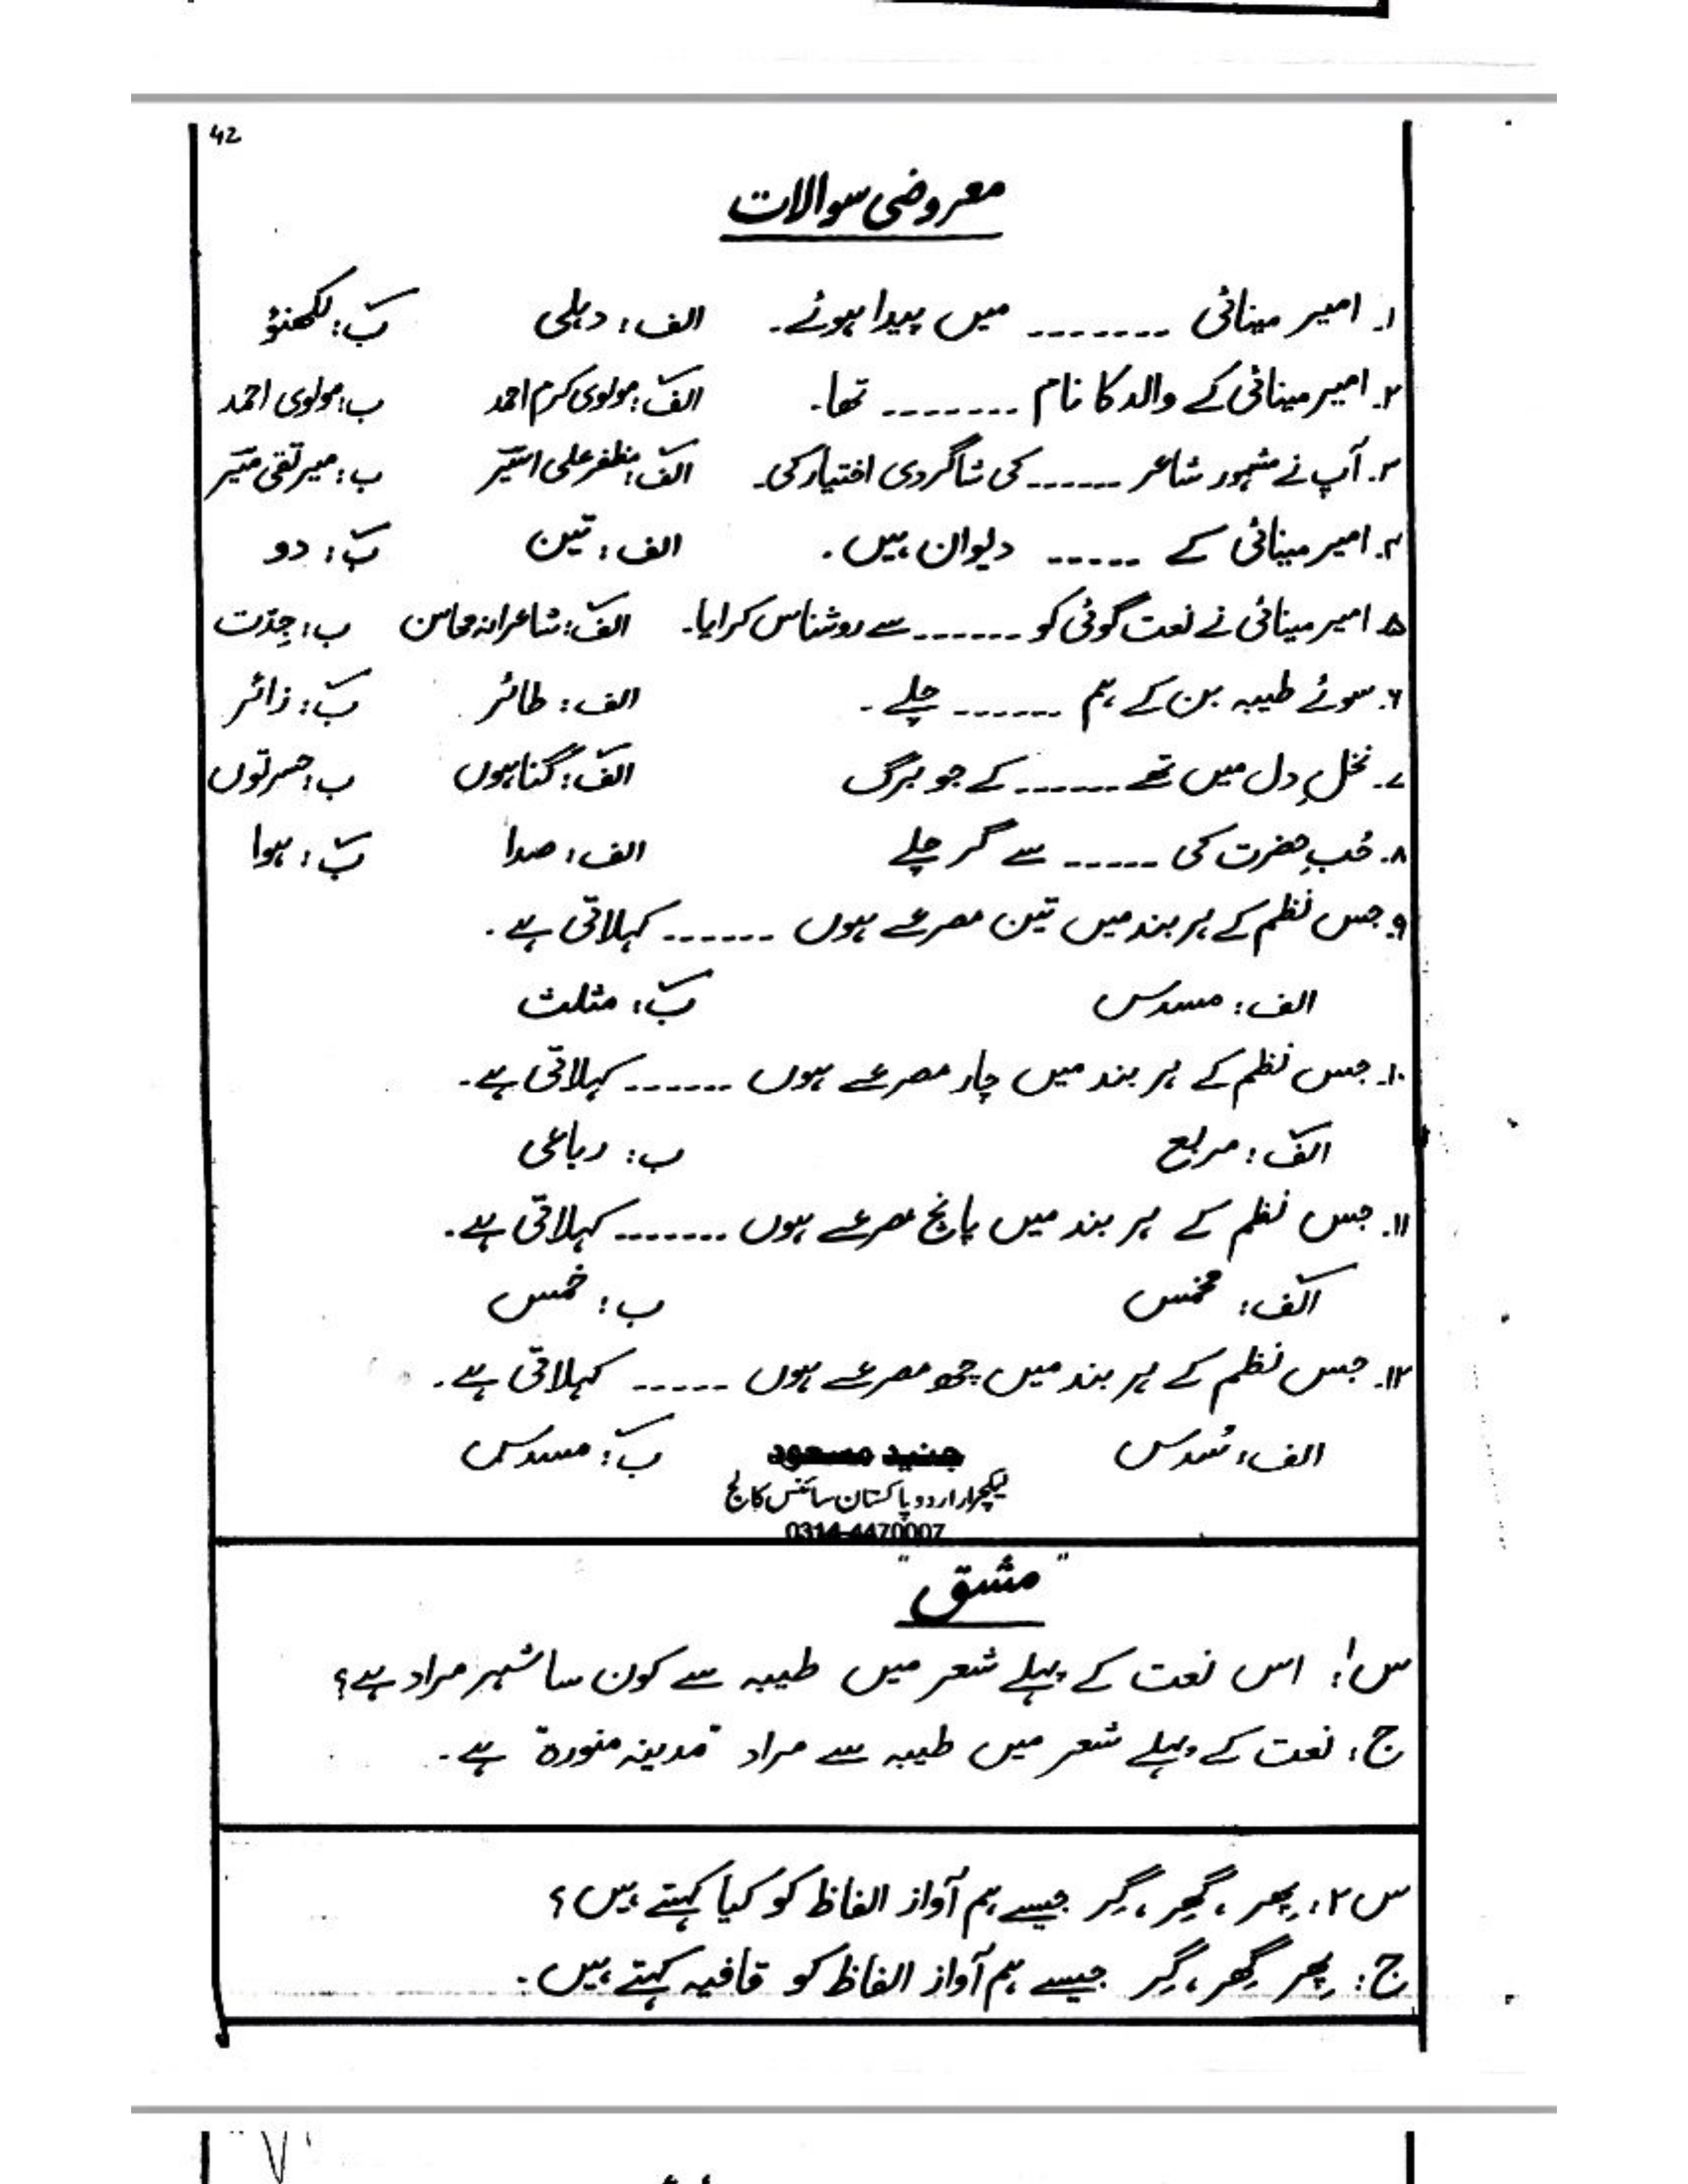 42
معروضی سوالات
۱۔ امیر مینائی ------- میں پیدا ہوئے۔ الف: دہلی ب: لکھنؤ
۲۔ امیر مینائی کے والد کا نام -------- تھا۔ الف: مولوی کرم احمد ب: مولوی احمد
۳۔ آپ نے مشہور شاعر ------ کی شاگردی اختیار کی۔ الف: مظفر علی اسیر ب: میر تقی میر
۴۔ امیر مینائی کے ----- دیوان ہیں۔ الف: تین ب: دو
۵۔ امیر مینائی نے نعت گوئی کو ------- سے روشناس کرایا۔ الف: شاعرانہ محاسن ب: جدّت
۶۔ سوئے طیبہ بن کے ہم ------- چلے۔ الف: طائر ب: زائر
۷۔ نخلِ دل میں تھے ------- کے جو برگ الف: گناہوں ب: حسرتوں
۸۔ حُبِ حضرت کی ------ سے گر چلے الف: صدا ب: ہوا
۹۔ جس نظم کے ہر بند میں تین مصرعے ہوں ------- کہلاتی ہے۔
الف: مسدس ب: مثلث
۱۰۔ جس نظم کے ہر بند میں چار مصرعے ہوں ------- کہلاتی ہے۔
الف: مربع ب: رباعی
۱۱۔ جس نظم کے ہر بند میں پانچ مصرعے ہوں ------- کہلاتی ہے۔
الف: مخمس ب: خمس
۱۲۔ جس نظم کے ہر بند میں چھ مصرعے ہوں ----- کہلاتی ہے۔
الف: سُدس ب: مسدس
جنید مسعود
لیکچرار اردو پاکستان سائنس کالج
0314-4470007
"مشق"
س۱: اس نعت کے پہلے شعر میں طیبہ سے کون سا شہر مراد ہے؟
ج: نعت کے پہلے شعر میں طیبہ سے مراد "مدینہ منورہ" ہے۔
س۲: پھِر، گھِر، گِر جیسے ہم آواز الفاظ کو کیا کہتے ہیں؟
ج: پھِر گھِر، گِر جیسے ہم آواز الفاظ کو قافیہ کہتے ہیں۔